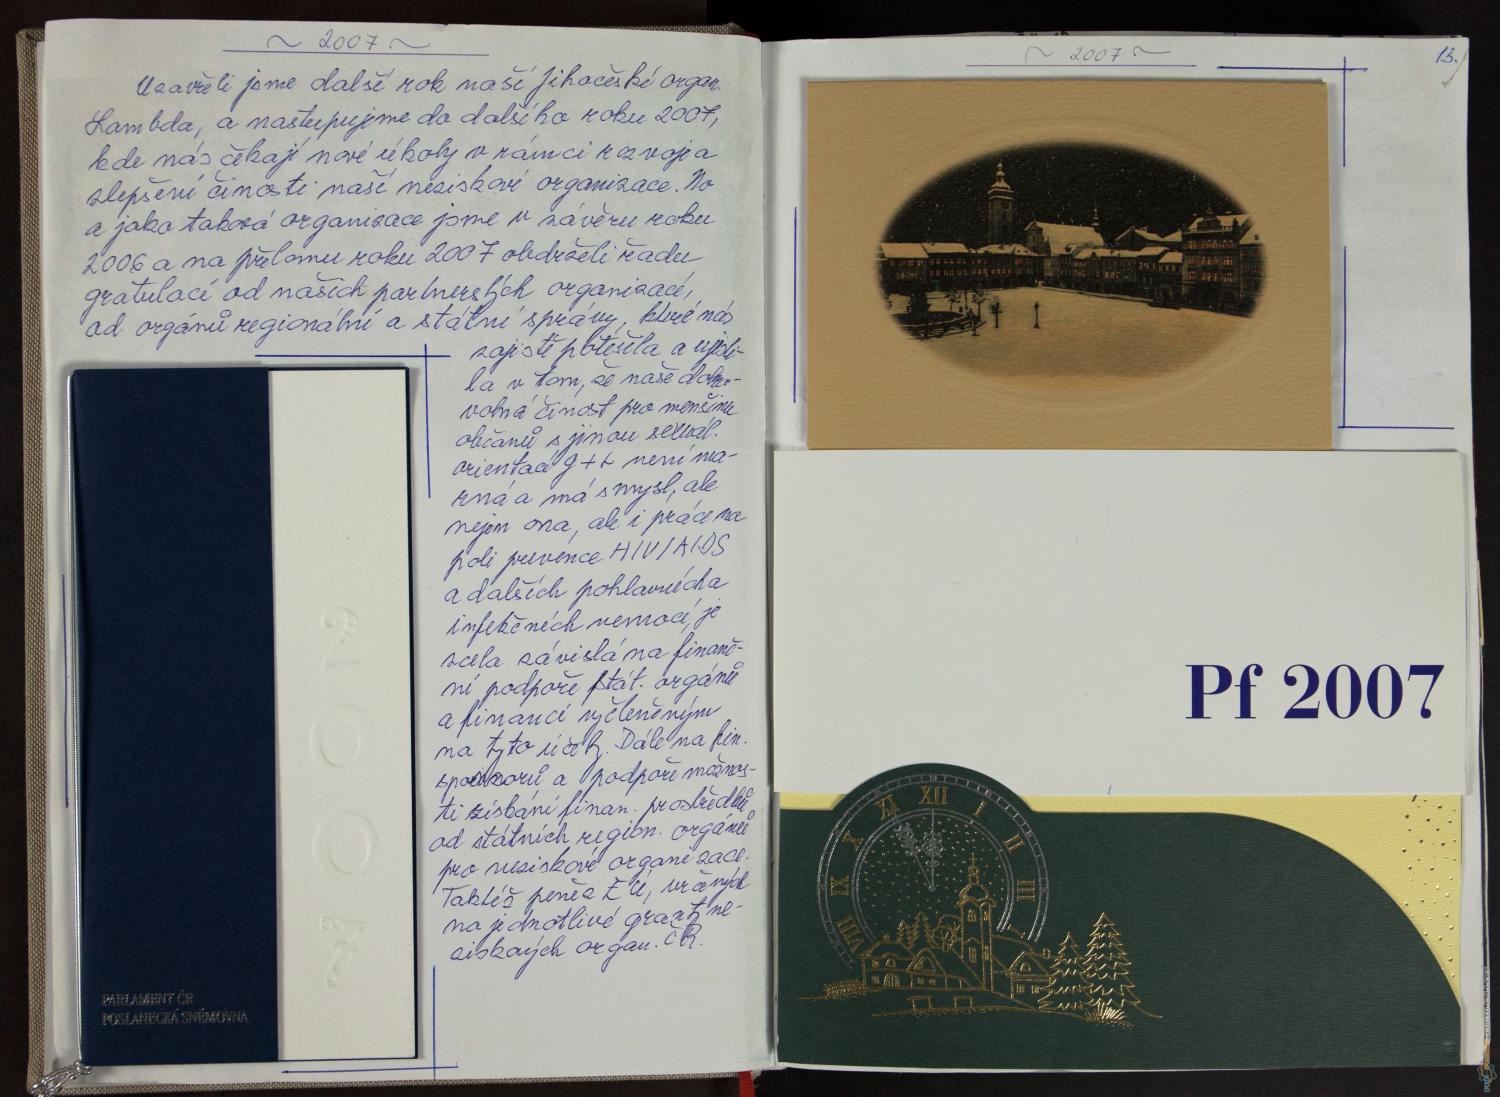 ~ 2007 ~
Uzavřeli jsme další rok naší Jihočeské organ.
Lambda, a nastupujeme do dalšího roku 2007,
kde nás čekají nové úkoly v rámci rozvoje a
zlepšení činosti naší neziskové organizace. No
a jako taková organizace jsme v závěru roku
2006 a na přelomu roku 2007 obdrželi řadu
gratulací od našich partnerských organizací,
od orgánů regionální a státní správy, které nás
zajisté potěšila a ujisti-
la v tom, že naše dobro-
volná činost pro menšinu
občanů s jinou sexuál.
orientací g+l není ma-
rná a má smysl, ale
nejen ona, ale i práce na
poli prevence HIV/AIDS
a dalších pohlavních a
infekčních nemocí, je
zcela závislá na finanč-
ní podpoře stát. orgánů
a financí vyčleněným
na tyto účely. Dále na fin.
sponzorů a podpoře možnos-
ti získání finan. prostředků
od státních region. orgánů
pro neziskové organizace.
Taktéž peněz EU, určených
na jednotlivé granty ne-
ziskových organ. ČR.
2007
PARLAMENT ČR
POSLANECKÁ SNĚMOVNA
~ 2007 ~
13.
Pf 2007
VIII IX X XI XII I II III